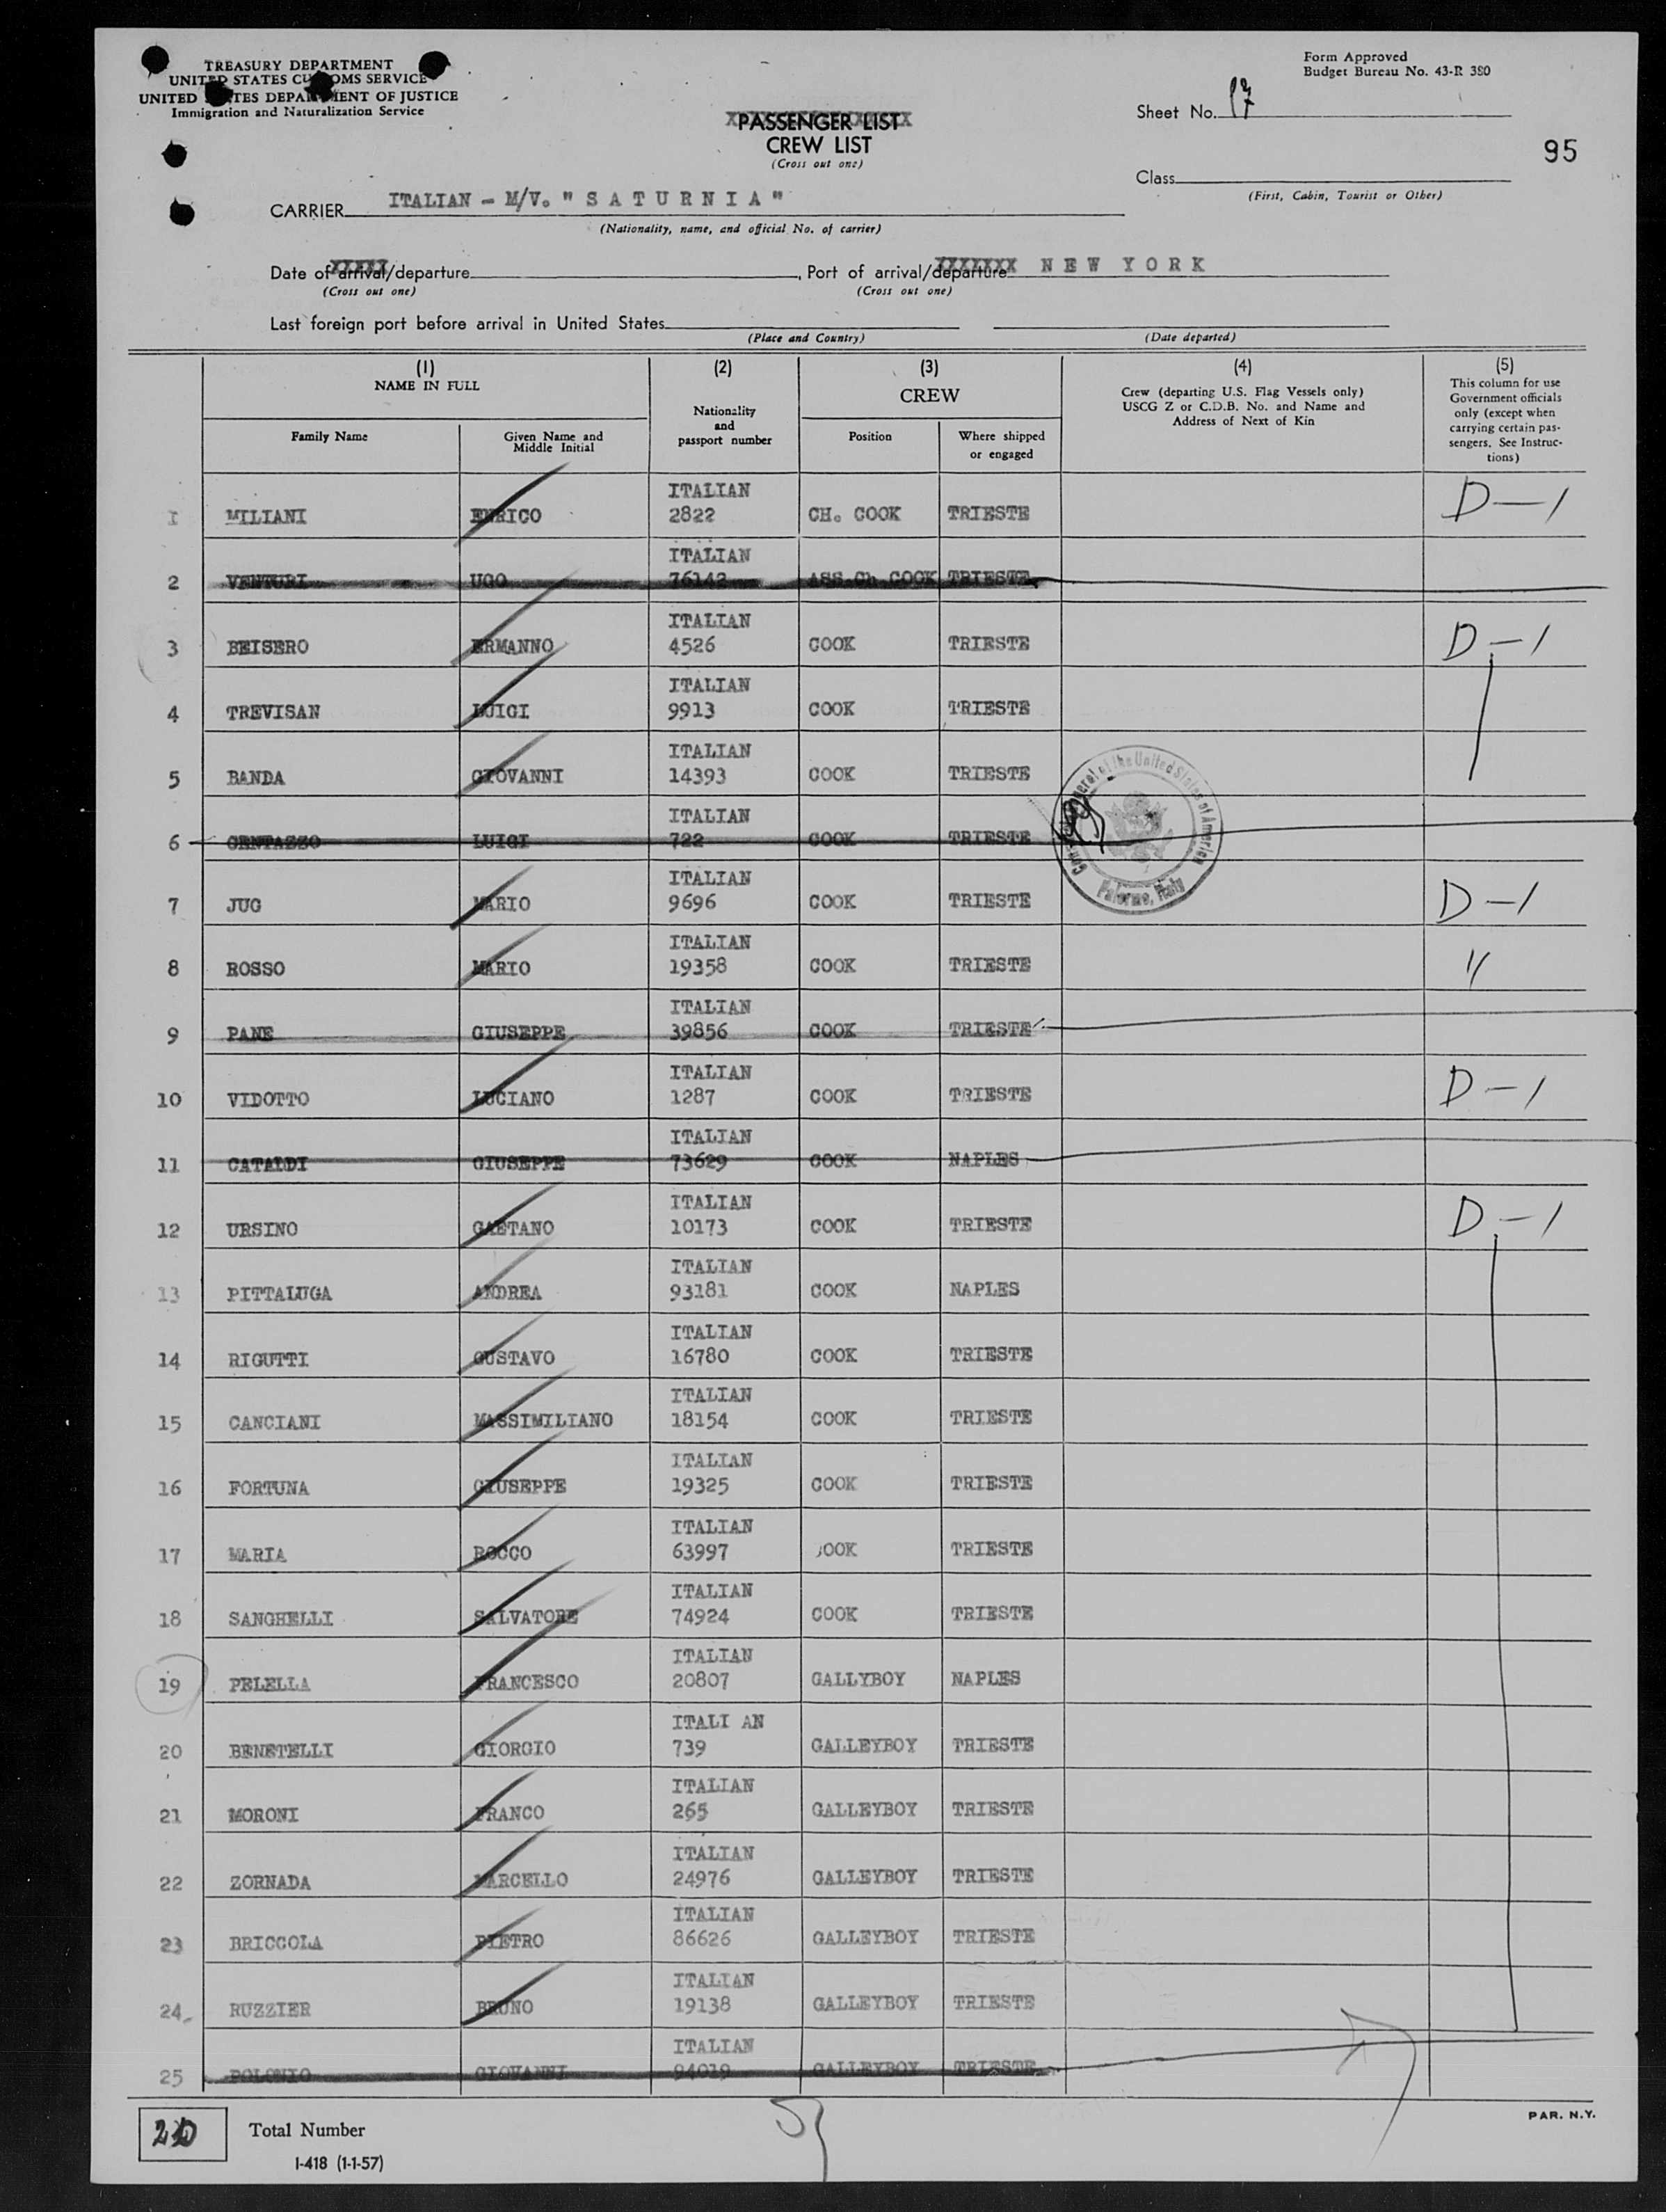 TREASURY DEPARTMENT
UNITED STATES CUSTOMS SERVICE
UNITED STATES DEPARTMENT OF JUSTICE
Immigration and Naturalization Service
Form Approved
Budget Bureau No. 43-R 380
Sheet No.
95
PASSENGER LIST
CREW LIST
(Cross out one)
Class
(First, Cabin, Tourist or Other)
CARRIER ITALIAN - M/V. " S A T U R N I A "
(Nationality, name, and official No. of carrier)
Date of arrival/departure , Port of arrival/departure N E W Y O R K
(Cross out one) (Cross out one)
Last foreign port before arrival in United States
(Place and Country) (Date departed)
(1) (2) (3) (4) (5)
NAME IN FULL
Family Name
Given Name and
Middle Initial
Nationality
and
passport number
CREW
Position
Where shipped
or engaged
Crew (departing U.S. Flag Vessels only)
USCG Z or C.D.B. No. and Name and
Address of Next of Kin
This column for use
Government officials
only (except when
carrying certain pas-
sengers. See Instruc-
tions)
ITALIAN
1 MILIANI ENRICO 2822 CH. COOK TRIESTE D-1
ITALIAN
2 VENTURI UGO 76142 ASS.Ch COOK TRIESTE
ITALIAN
3 BEISERO ERMANNO 4526 COOK TRIESTE D-1
ITALIAN
4 TREVISAN LUIGI 9913 COOK TRIESTE
ITALIAN
5 BANDA GIOVANNI 14393 COOK TRIESTE
ITALIAN
6 CENTAZZO LUIGI 722 COOK TRIESTE
General of the United States of America
Palermo, Italy
ITALIAN
7 JUG MARIO 9696 COOK TRIESTE D-1
ITALIAN
8 ROSSO MARIO 19358 COOK TRIESTE "
ITALIAN
9 PANE GIUSEPPE 39856 COOK TRIESTE
ITALIAN
10 VIDOTTO LUCIANO 1287 COOK TRIESTE D-1
ITALIAN
11 CATALDI GIUSEPPE 73629 COOK NAPLES
ITALIAN
12 URSINO GAETANO 10173 COOK TRIESTE D-1
ITALIAN
13 PITTALUGA ANDREA 93181 COOK NAPLES
ITALIAN
14 RIGUTTI GUSTAVO 16780 COOK TRIESTE
ITALIAN
15 CANCIANI MASSIMILIANO 18154 COOK TRIESTE
ITALIAN
16 FORTUNA GIUSEPPE 19325 COOK TRIESTE
ITALIAN
17 MARIA ROCCO 63997 COOK TRIESTE
ITALIAN
18 SANGHELLI SALVATORE 74924 COOK TRIESTE
ITALIAN
19 PELELLA FRANCESCO 20807 GALLYBOY NAPLES
ITALI AN
20 BENETELLI GIORGIO 739 GALLEYBOY TRIESTE
ITALIAN
21 MORONI FRANCO 265 GALLEYBOY TRIESTE
ITALIAN
22 ZORNADA MARCELLO 24976 GALLEYBOY TRIESTE
ITALIAN
23 BRICCOLA PIETRO 86626 GALLEYBOY TRIESTE
ITALIAN
24 RUZZIER BRUNO 19138 GALLEYBOY TRIESTE
ITALIAN
25 POLONIO GIOVANNI 94019 GALLEYBOY TRIESTE
Total Number
I-418 (1-1-57)
PAR. N.Y.